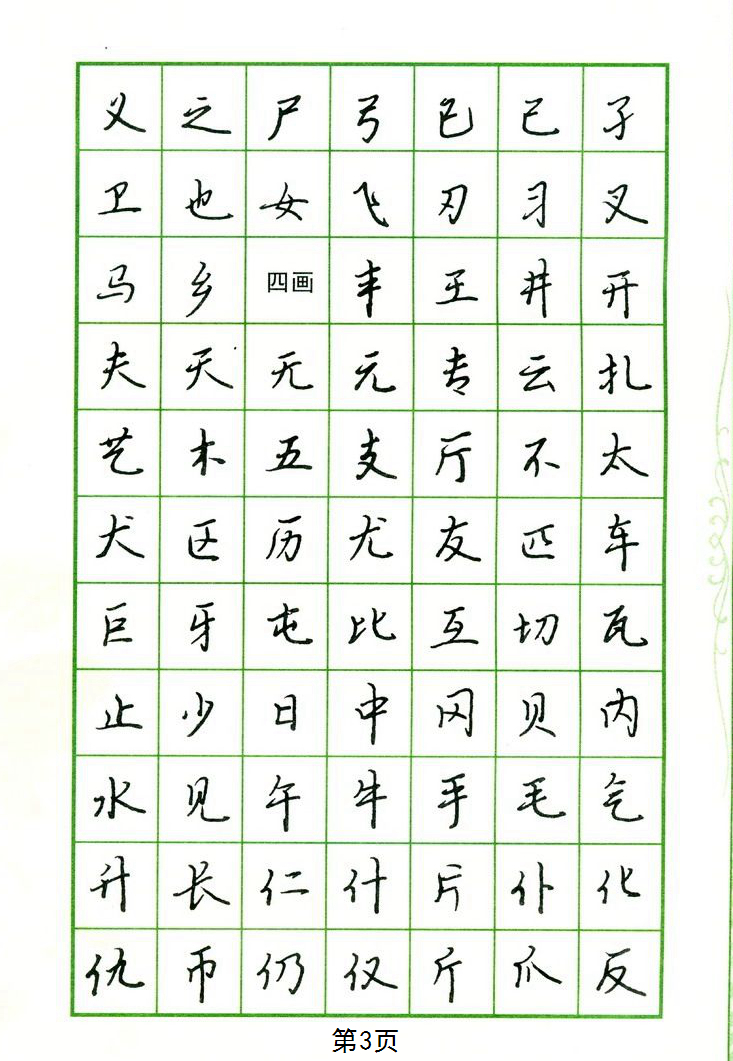 义 之 尸 弓 巳 已 子
卫 也 女 飞 刃 习 叉
马 乡 四画 丰 王 井 开
夫 天 无 元 专 云 扎
艺 木 五 支 厅 不 太
犬 区 历 尤 友 匹 车
巨 牙 屯 比 互 切 瓦
止 少 日 中 冈 贝 内
水 见 午 牛 手 毛 气
升 长 仁 什 片 仆 化
仇 币 仍 仅 斤 爪 反
第3页